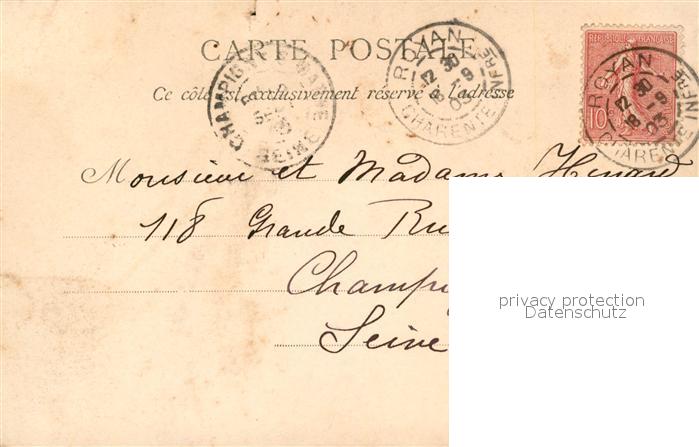 CARTE POSTALE
Ce côté est exclusivement réservé à l'adresse
ROYAN
12 30
8 9
03
CHARENTE INFRE
CHAMPIGNY
SEINE
RÉPUBLIQUE FRANÇAISE
10
ROYAN
12 30
8 9
03
CHARENTE INFRE
Monsieur et Madame
118 Grande Ru
Champig
Seine
privacy protection
Datenschutz